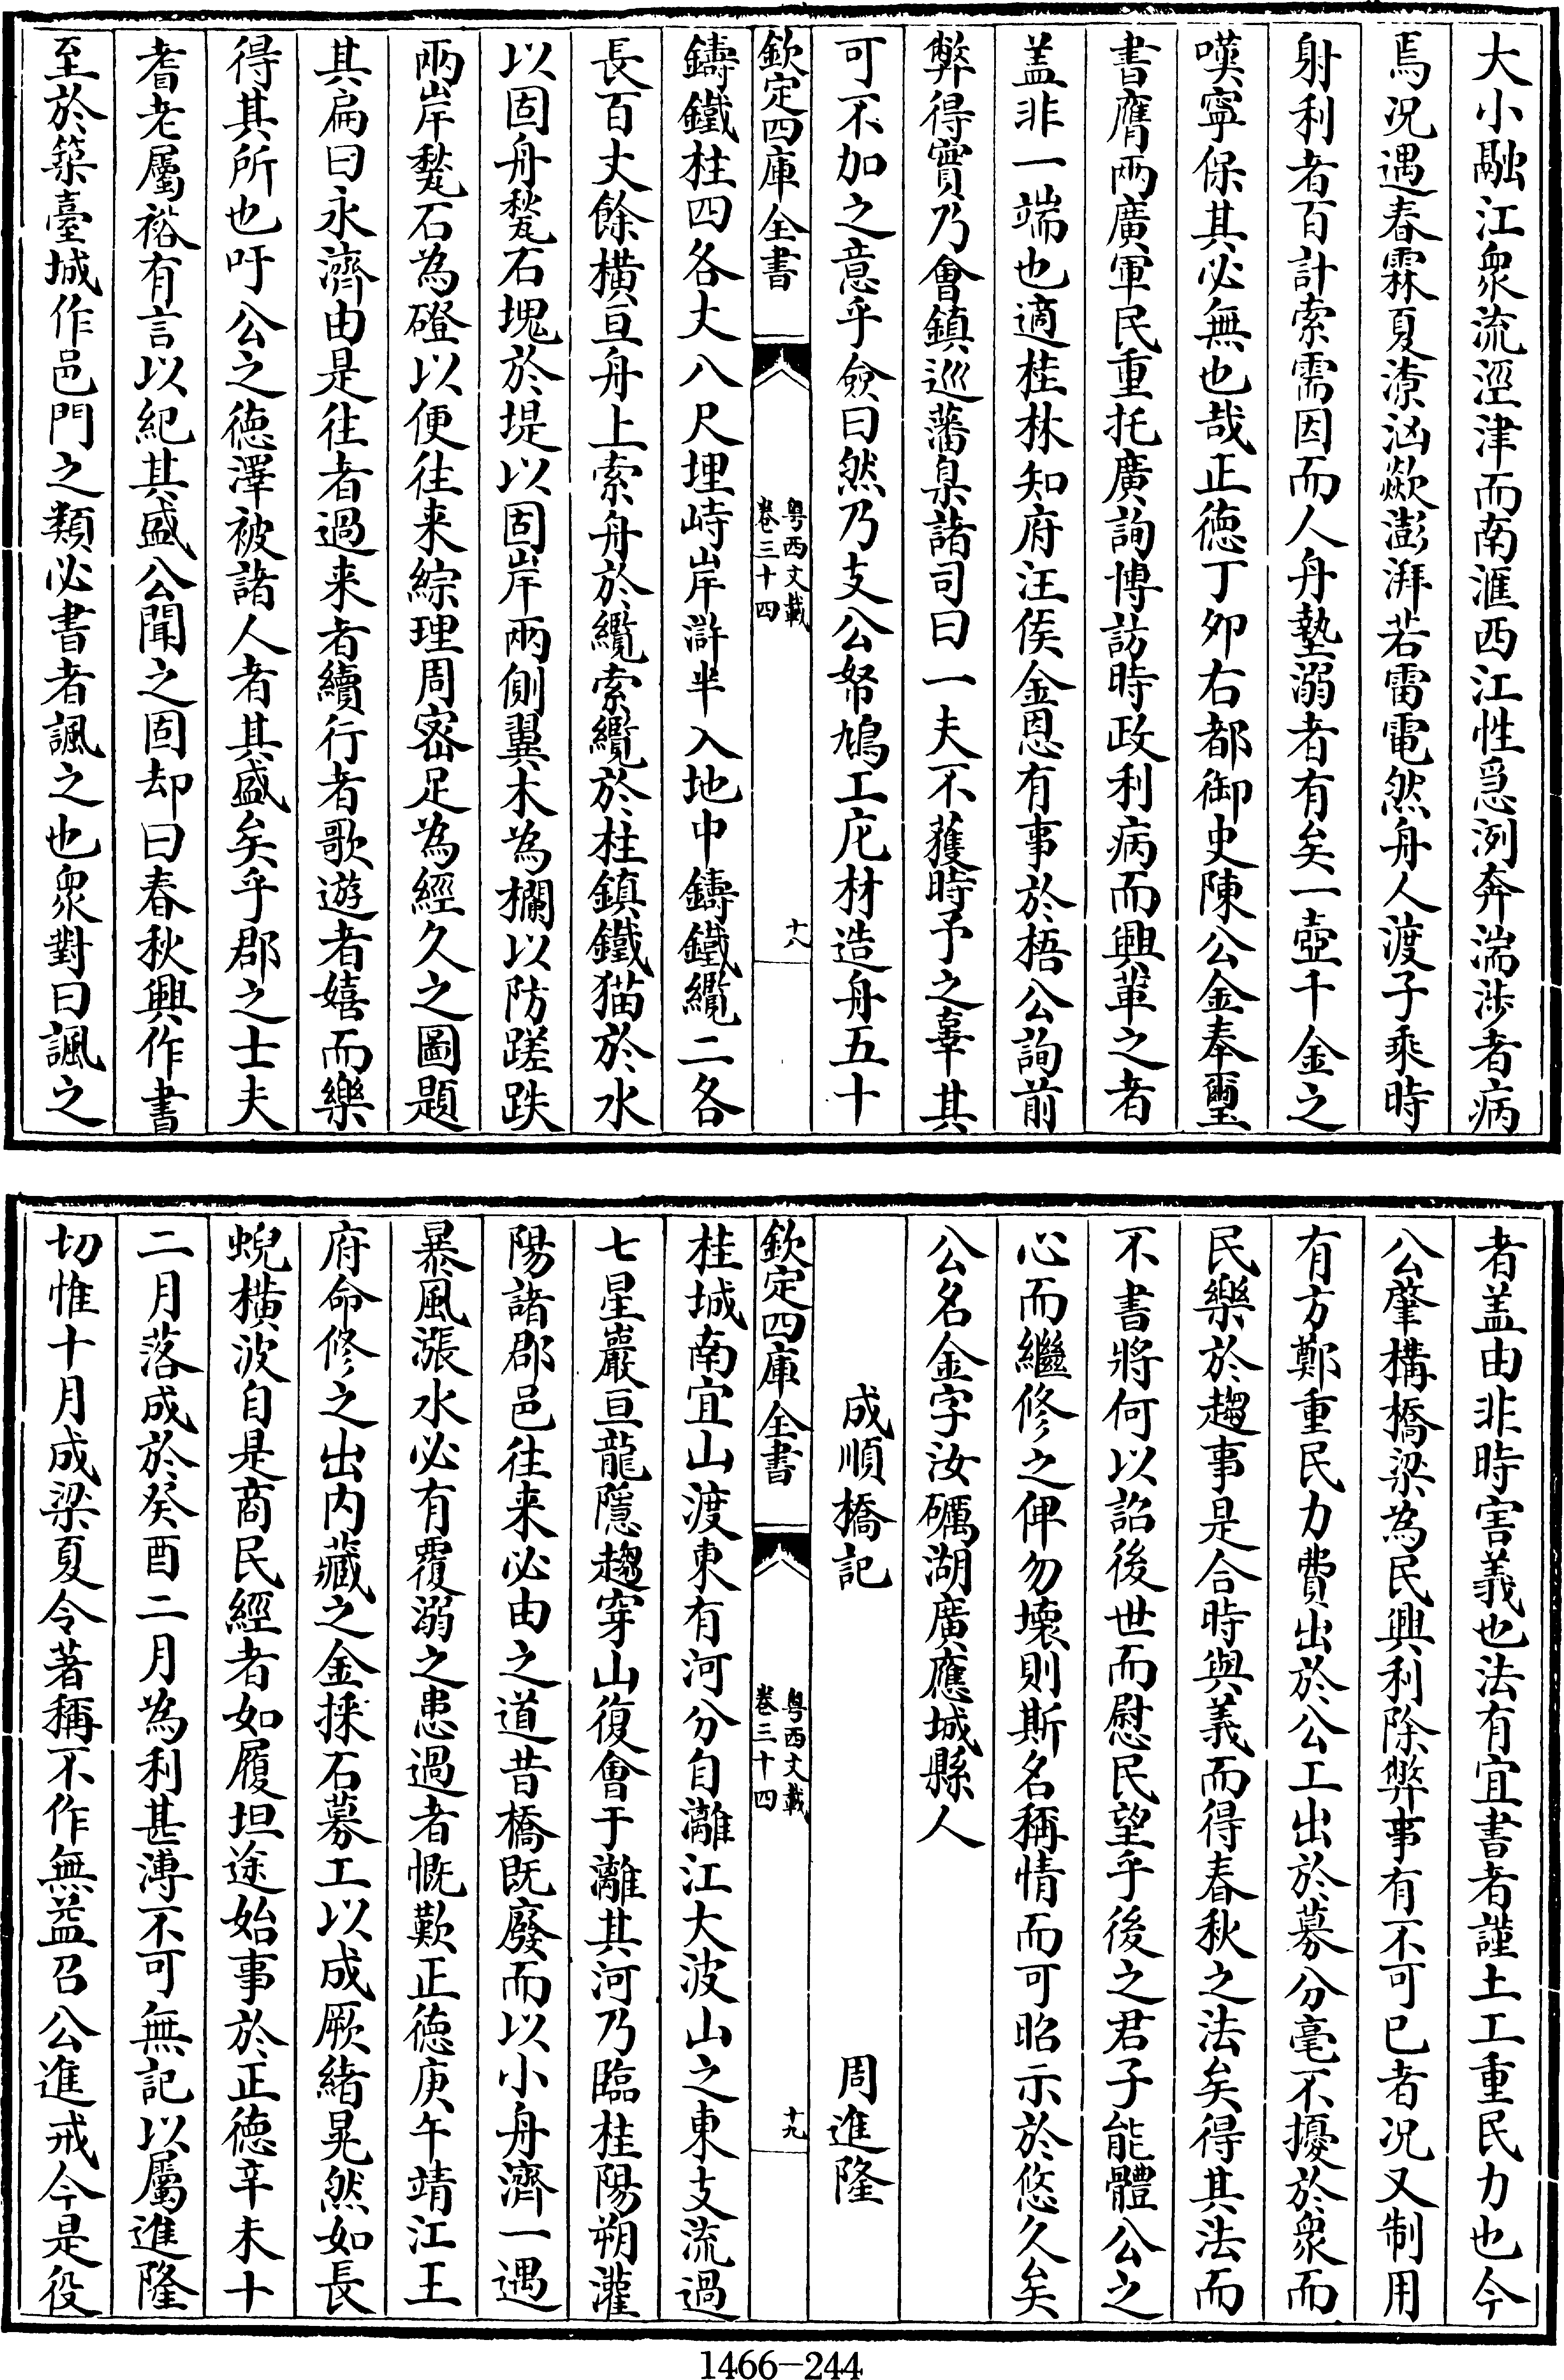 大小融江衆流涇津而南滙西江性急洌奔湍涉者病
焉况遇春霖夏潦汹歘澎湃若雷電然舟人渡子乘時
射利者百計索需因而人舟墊溺者有矣一壺千金之
嘆寜保其必無也哉正徳丁夘右都御史陳公金奉璽
書膺兩廣軍民重托廣詢博訪時政利病而興革之者
盖非一端也適桂林知府汪侯金恩有事於梧公詢前
弊得實乃會鎮巡藩臬諸司曰一夫不獲時予之辜其
可不加之意乎僉曰然乃支公帑鳩工庀材造舟五十
欽定四庫全書
粤西文載
卷三十四
十八
鑄鐵柱四各丈八尺埋峙岸滸半入地中鑄鐵纜二各
長百丈餘横亘舟上索舟於纜索纜於柱鎮鐵猫於水
以固舟甃石塊於堤以固岸兩側翼木為欄以防蹉跌
兩岸甃石為磴以便往来綜理周宻足為經久之圖題
其扁曰永濟由是往者過来者續行者歌遊者嬉而樂
得其所也吁公之徳澤被諸人者其盛矣乎郡之士夫
耆老屬裕有言以紀其盛公聞之固却曰春秋興作書
至於築臺城作邑門之類必書者諷之也衆對曰諷之
者盖由非時害義也法有宜書者謹土工重民力也今
公肇構橋梁為民興利除弊事有不可已者况又制用
有方鄭重民力費出於公工出於募分毫不擾於衆而
民樂於趨事是合時與義而得春秋之法矣得其法而
不書將何以詔後世而慰民望乎後之君子能體公之
心而繼修之俾勿壊則斯名稱情而可昭示於悠久矣
公名金字汝礪湖廣應城縣人
成順橋記　周進隆
欽定四庫全書
粤西文載
卷三十四
十九
桂城南宜山渡東有河分自灕江大波山之東支流過
七星巖亘龍隱趨穿山復會于灕其河乃臨桂陽朔灌
陽諸郡邑往来必由之道昔橋既廢而以小舟濟一遇
暴風漲水必有覆溺之患過者慨歎正徳庚午靖江王
府命修之出内藏之金採石募工以成厥緒晃然如長
蜺横波自是商民經者如履坦途始事於正徳辛未十
二月落成於癸酉二月為利甚溥不可無記以屬進隆
切惟十月成梁夏令著稱不作無益召公進戒今是役
1466-244